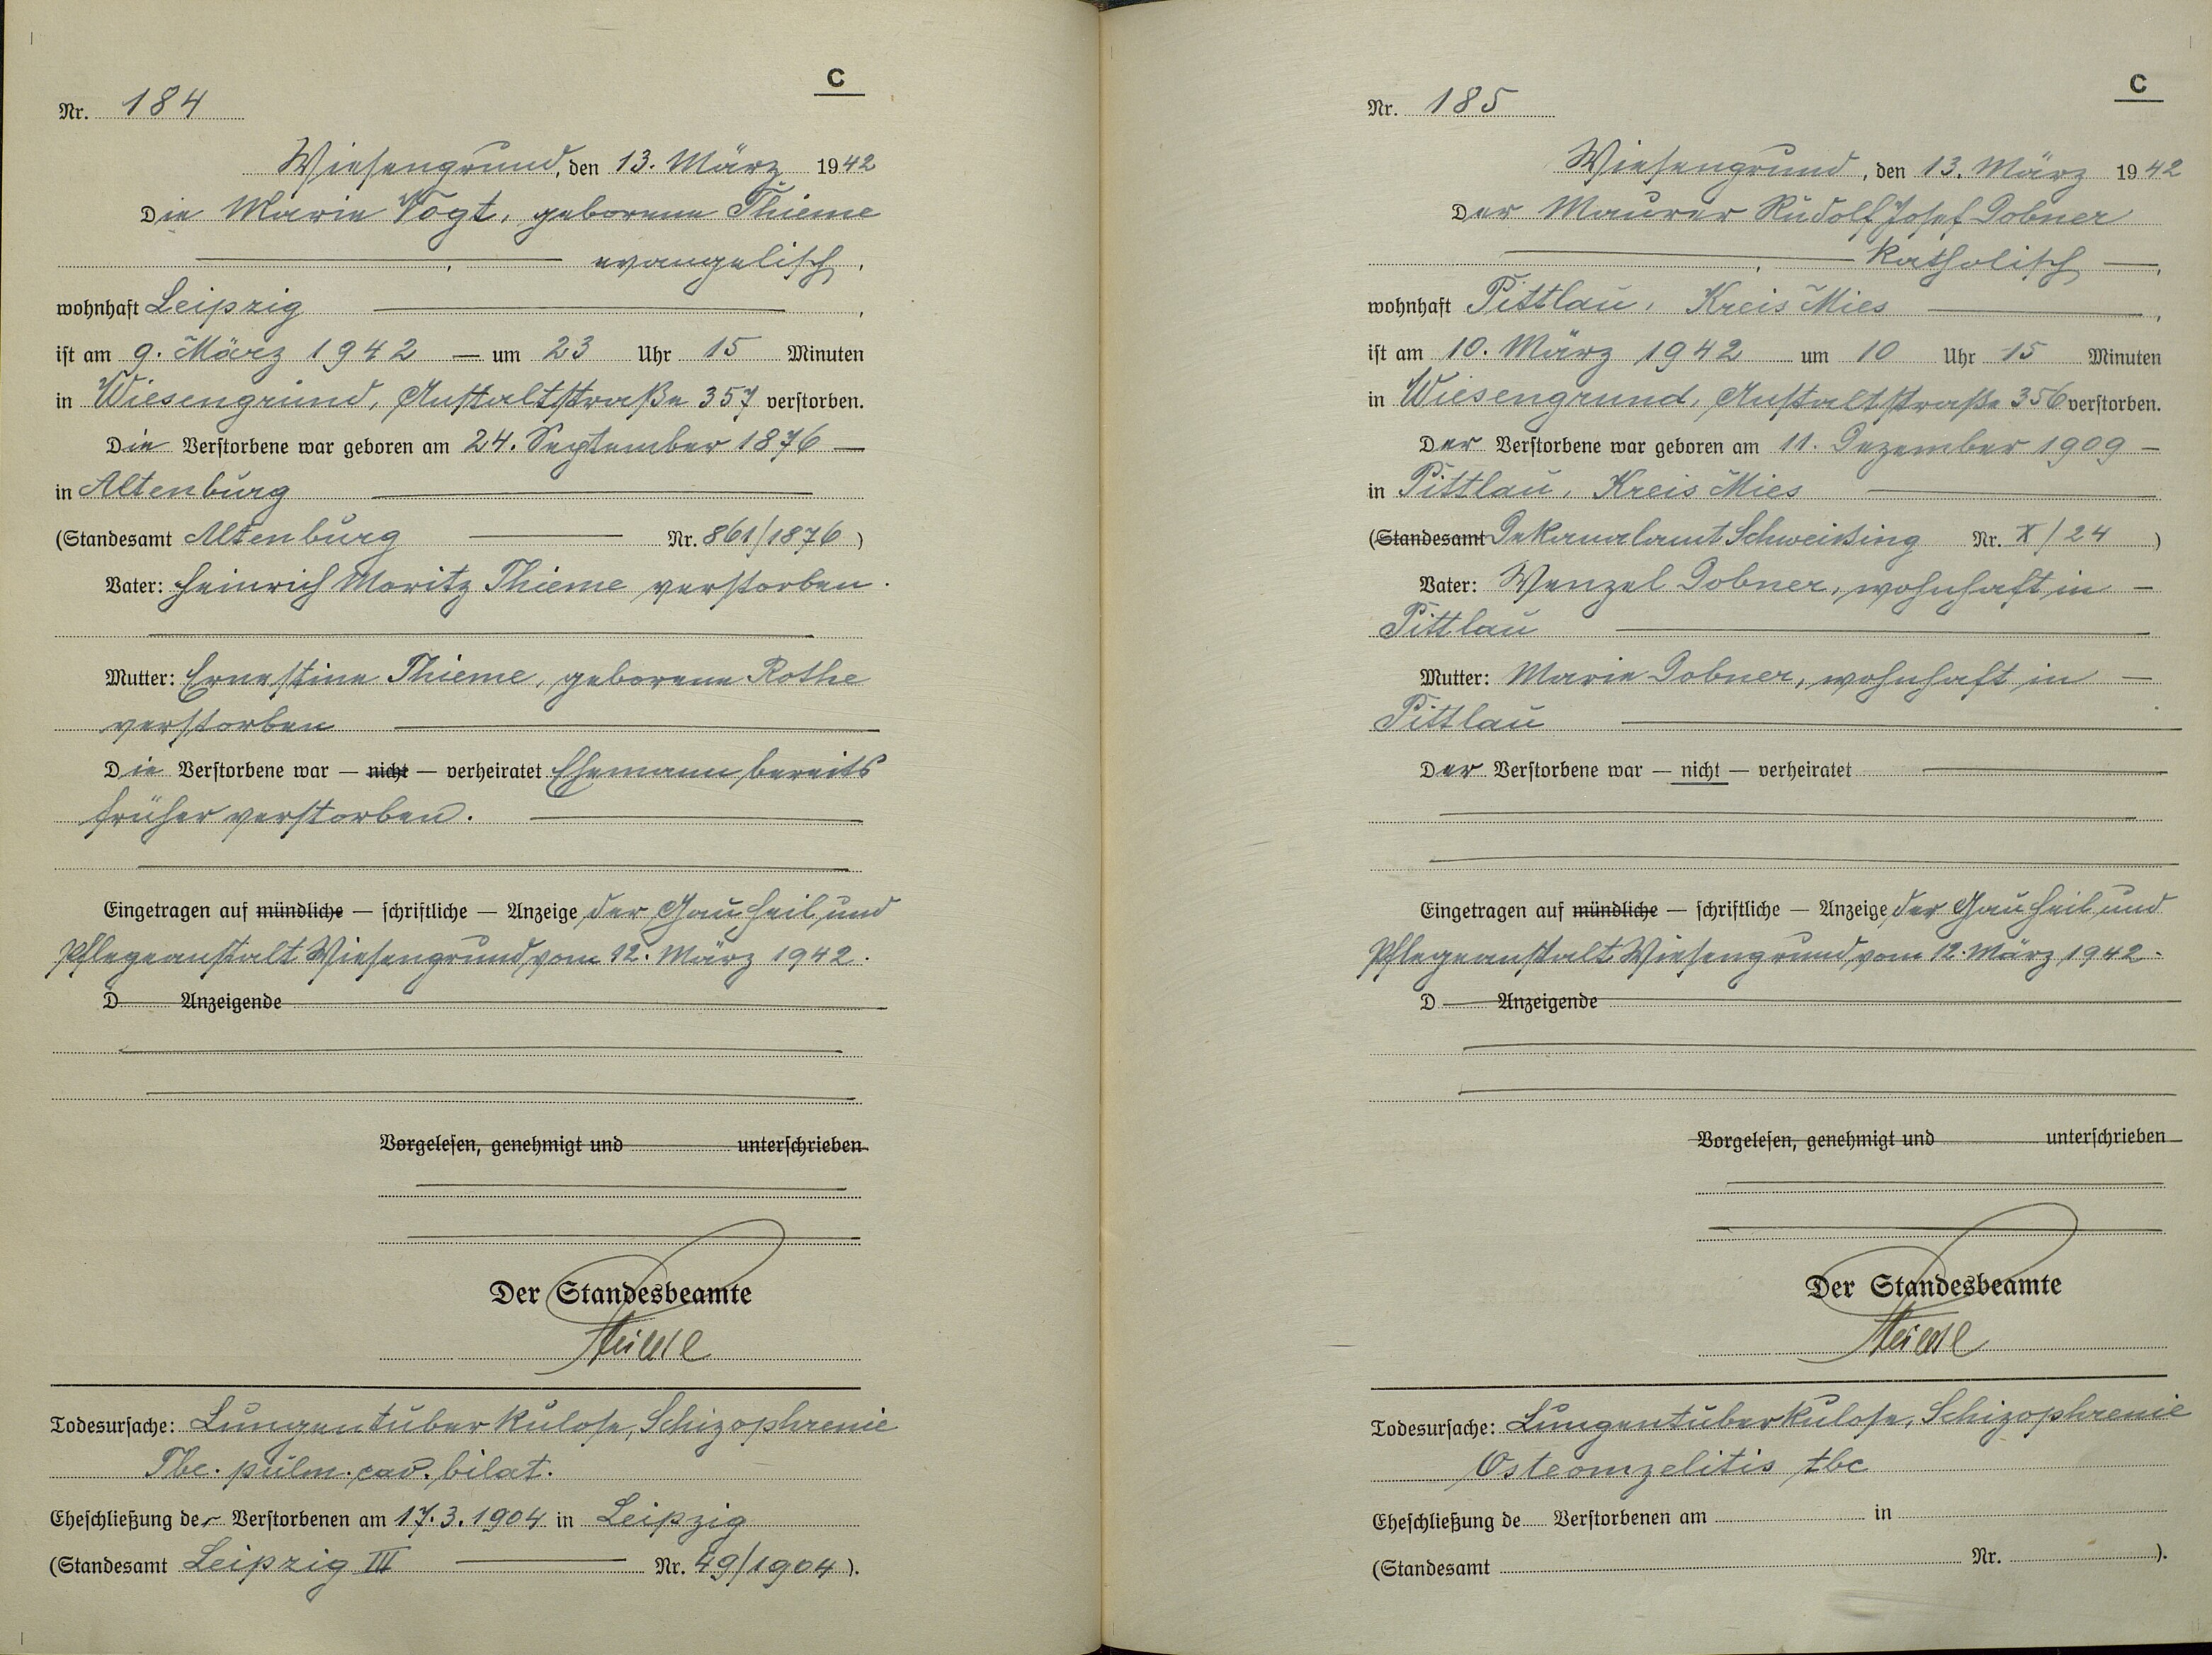 C
Nr. 184
Wiesengrund, den 13. März 1942
Die Marie Vogt, geborene Thieme
evangelisch,
wohnhaft Leipzig
ist am 9. März 1942 — um 23 Uhr 15 Minuten
in Wiesengrund, Anstaltstraße 357 verstorben.
Die Verstorbene war geboren am 24. September 1876 —
in Altenburg
(Standesamt Altenburg — Nr. 861/1876)
Vater: Heinrich Moritz Thieme verstorben.
Mutter: Ernestine Thieme, geborene Rothe
verstorben
Die Verstorbene war — nicht — verheiratet Ehemann bereits
früher verstorben.
Eingetragen auf mündliche — schriftliche — Anzeige der Gau Heil und
Pflegeanstalt Wiesengrund vom 12. März 1942.
D Anzeigende
Vorgelesen, genehmigt und unterschrieben
Der Standesbeamte
Todesursache: Lungentuberkulose, Schizophrenie
Tbc. pulm. cav. bilat.
Eheschließung der Verstorbenen am 17.3.1904 in Leipzig
(Standesamt Leipzig III — Nr. 49/1904).
C
Nr. 185
Wiesengrund, den 13. März 1942
Der Maurer Rudolf Josef Dobner
katholisch —,
wohnhaft Pittlau, Kreis Mies —,
ist am 10. März 1942 um 10 Uhr 15 Minuten
in Wiesengrund, Anstaltstraße 356 verstorben.
Der Verstorbene war geboren am 11. Dezember 1909 —
in Pittlau, Kreis Mies —
(Standesamt Dekanalamt Schweißing Nr. X/24)
Vater: Wenzel Dobner, wohnhaft in —
Pittlau
Mutter: Marie Dobner, wohnhaft in —
Pittlau
Der Verstorbene war — nicht — verheiratet
Eingetragen auf mündliche — schriftliche — Anzeige der Gau Heil und
Pflegeanstalt Wiesengrund vom 12. März 1942.
D Anzeigende
Vorgelesen, genehmigt und unterschrieben
Der Standesbeamte
Todesursache: Lungentuberkulose, Schizophrenie
Osteomyelitis tbc
Eheschließung de Verstorbenen am in
(Standesamt Nr. ).